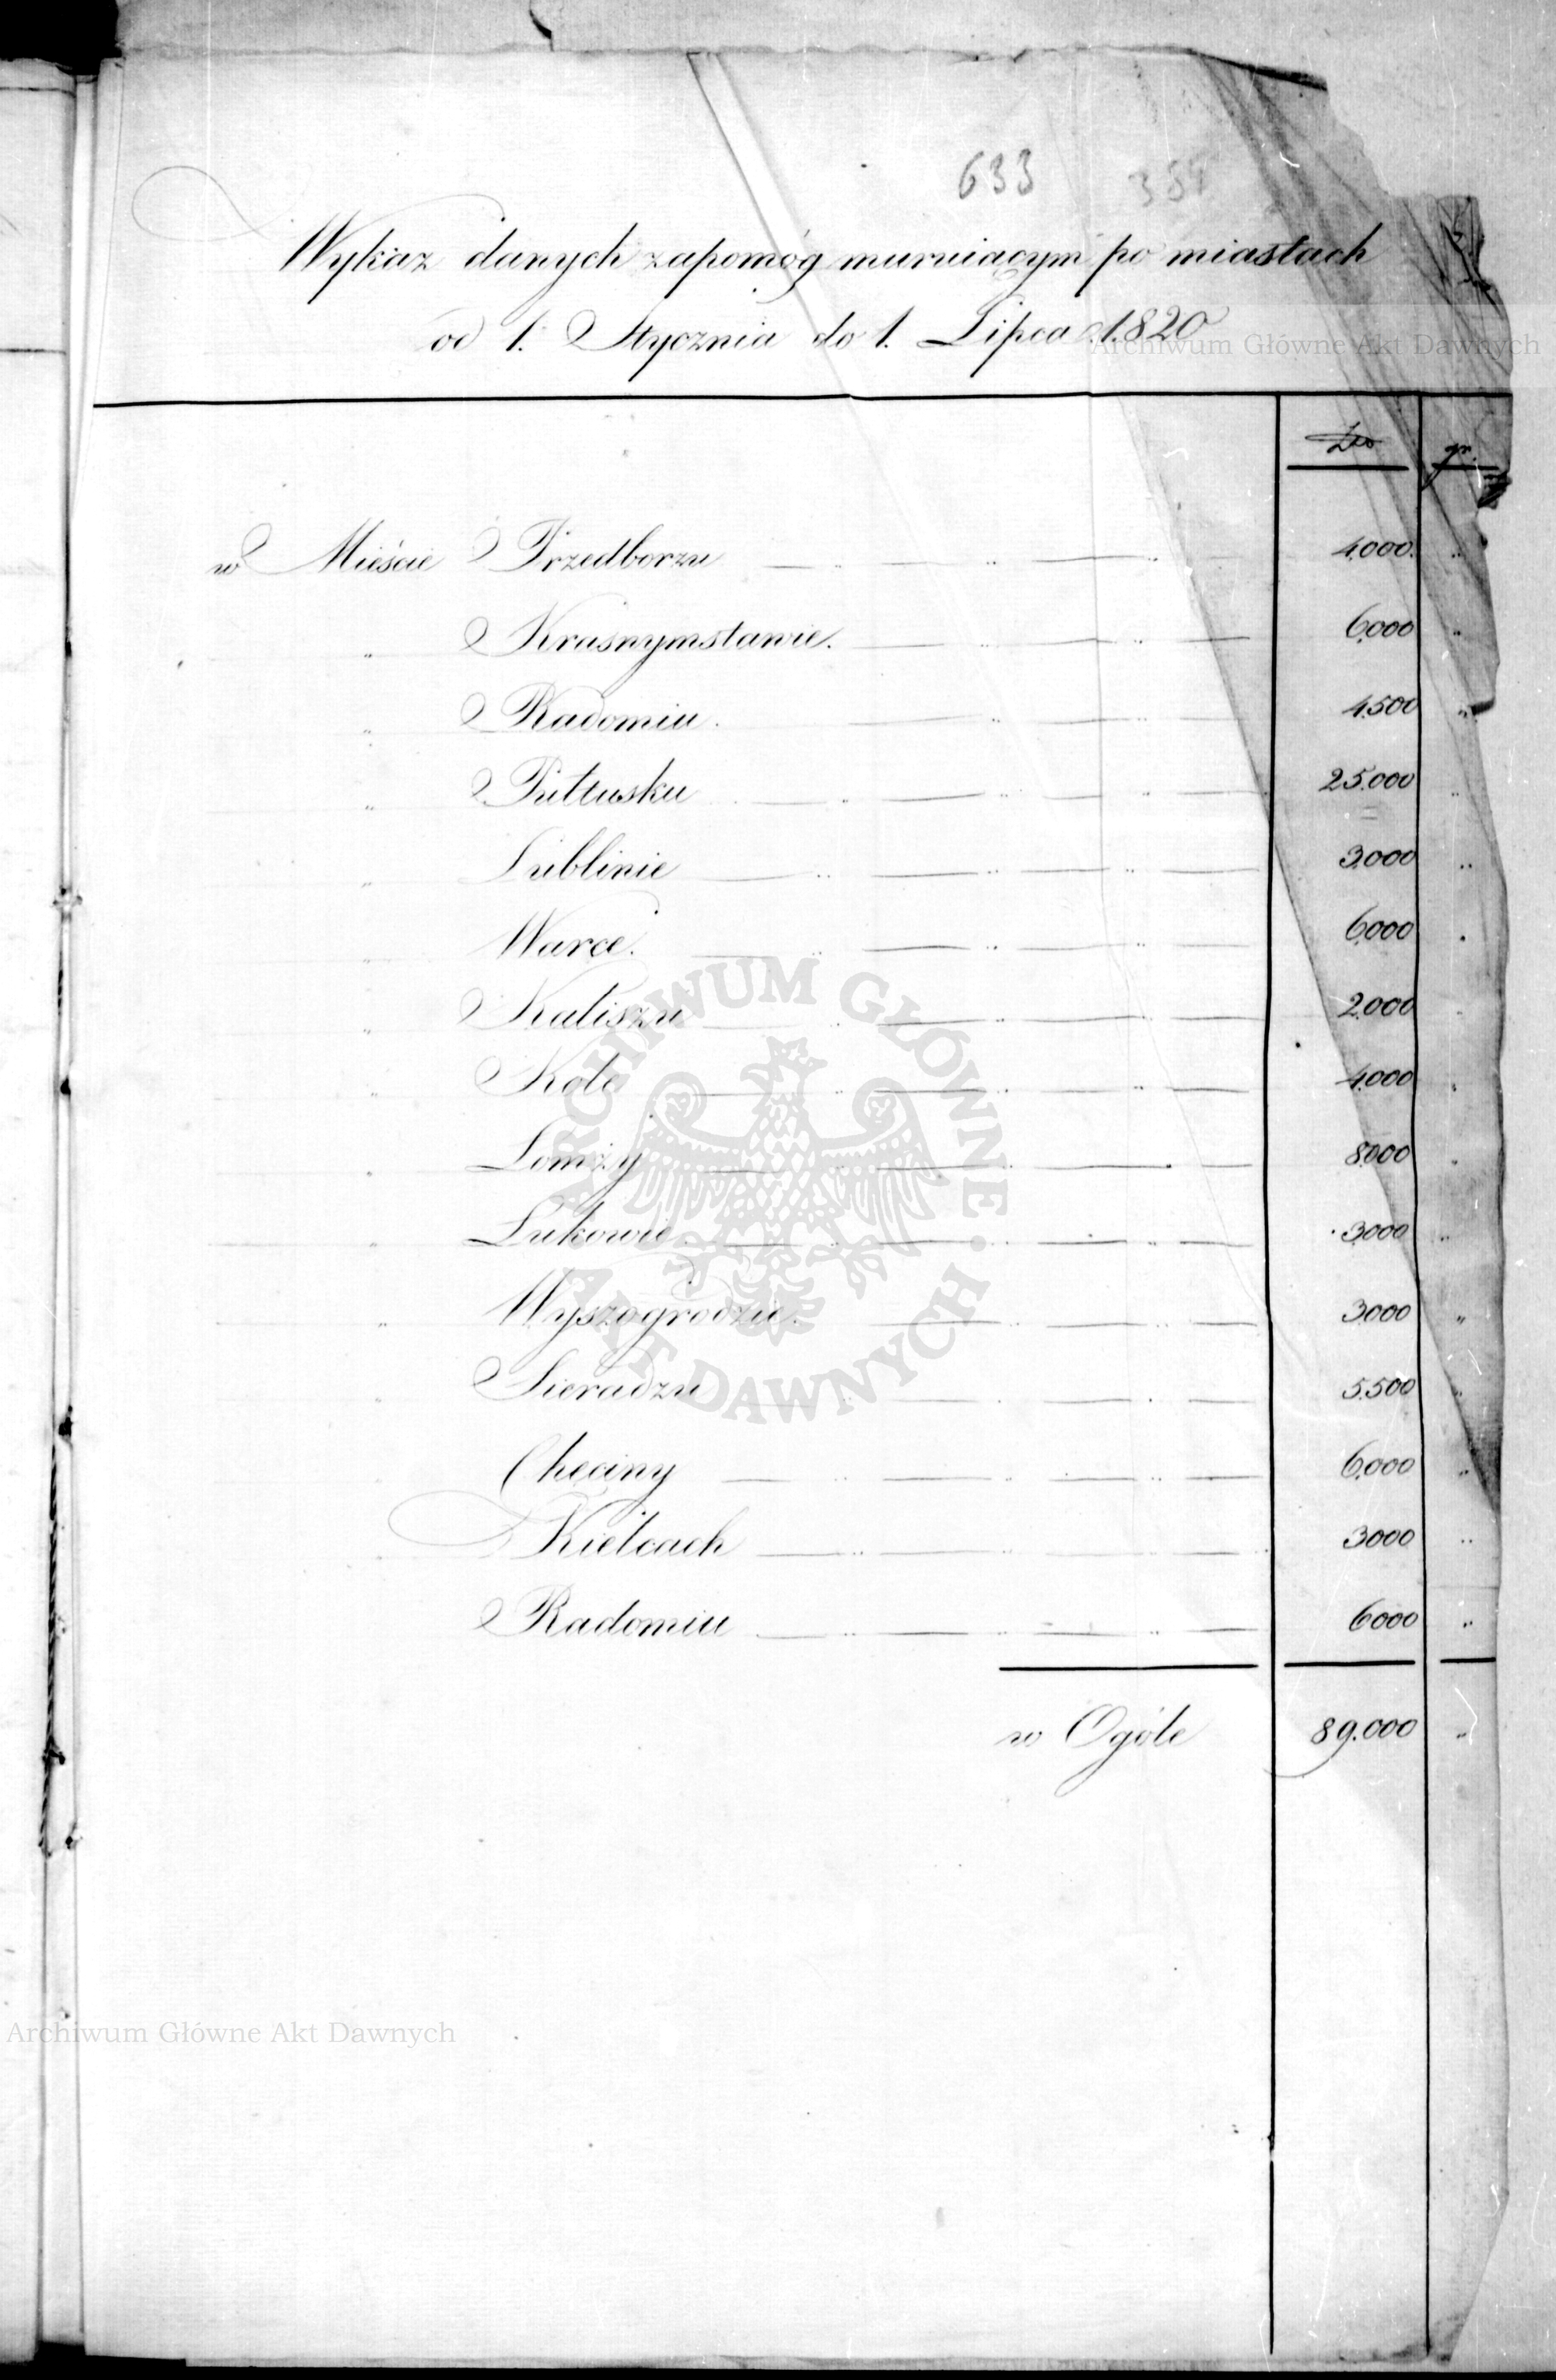 633 354
Wykaz danych zapomóg muruiącym po miastach
od 1. Stycznia do 1. Lipca 1820
Archiwum Główne Akt Dawnych
gr.
w Mieście Przedborzu — .. — .. — .. — 4.000. ..
„ Krasnymstawie. — .. — .. — 6.000 ..
„ Radomiu. — .. — .. — 4.500 „
„ Pułtusku — .. — .. — .. — 25.000 ..
„ Lublinie — .. — .. — .. — 3.000 ..
„ Warce. — .. — .. — .. — 6.000 .
„ Kaliszu — .. — .. — .. — 2.000 ..
„ Kole — .. — .. — .. — 4.000 .
„ Łomży — .. — .. — . — 8.000 .
„ Łukowie — .. — .. — .. — 3.000 ..
„ Wyszogrodzie. — .. — .. — 3000 „
„ Sieradzu — .. — .. — . — 5.500 ..
Checiny — .. — .. — .. — 6.000 ..
Kielcach — .. — .. — .. — 3000 ..
Radomiu — .. — .. — .. — 6000 ..
w Ogóle 89.000 „
ARCHIWUM GŁÓWNE · AKT DAWNYCH ·
Archiwum Główne Akt Dawnych